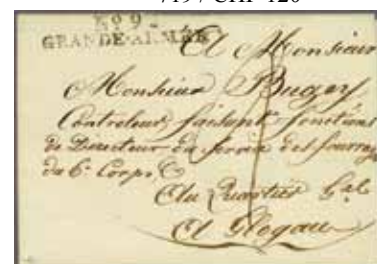 719 / CHF 120
No 9
GRANDE-ARMÉE
A Monsieur
Monsieur Buger
Controleur faisant fonctions
de Directeur du Service des fourrages
du 6e Corps
Au Quartier Gal
A Glogau